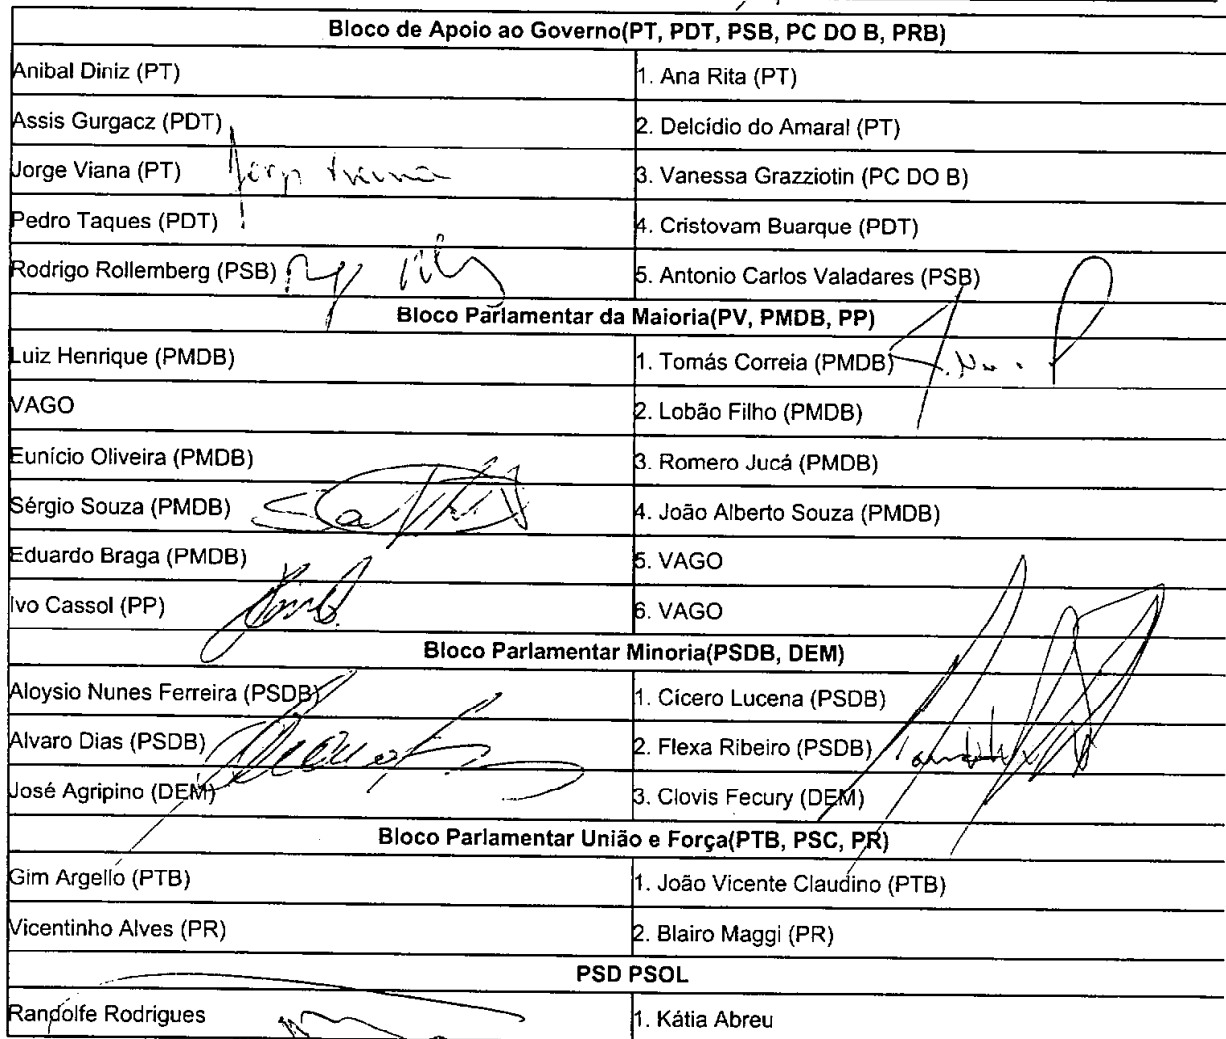 Bloco de Apoio ao Governo(PT, PDT, PSB, PC DO B, PRB)
Anibal Diniz (PT) 1. Ana Rita (PT)
Assis Gurgacz (PDT) 2. Delcídio do Amaral (PT)
Jorge Viana (PT) Jorge Viana 3. Vanessa Grazziotin (PC DO B)
Pedro Taques (PDT) 4. Cristovam Buarque (PDT)
Rodrigo Rollemberg (PSB) 5. Antonio Carlos Valadares (PSB)
Bloco Parlamentar da Maioria(PV, PMDB, PP)
Luiz Henrique (PMDB) 1. Tomás Correia (PMDB)
VAGO 2. Lobão Filho (PMDB)
Eunício Oliveira (PMDB) 3. Romero Jucá (PMDB)
Sérgio Souza (PMDB) 4. João Alberto Souza (PMDB)
Eduardo Braga (PMDB) 5. VAGO
Ivo Cassol (PP) 6. VAGO
Bloco Parlamentar Minoria(PSDB, DEM)
Aloysio Nunes Ferreira (PSDB) 1. Cícero Lucena (PSDB)
Alvaro Dias (PSDB) 2. Flexa Ribeiro (PSDB)
José Agripino (DEM) 3. Clovis Fecury (DEM)
Bloco Parlamentar União e Força(PTB, PSC, PR)
Gim Argello (PTB) 1. João Vicente Claudino (PTB)
Vicentinho Alves (PR) 2. Blairo Maggi (PR)
PSD PSOL
Randolfe Rodrigues 1. Kátia Abreu